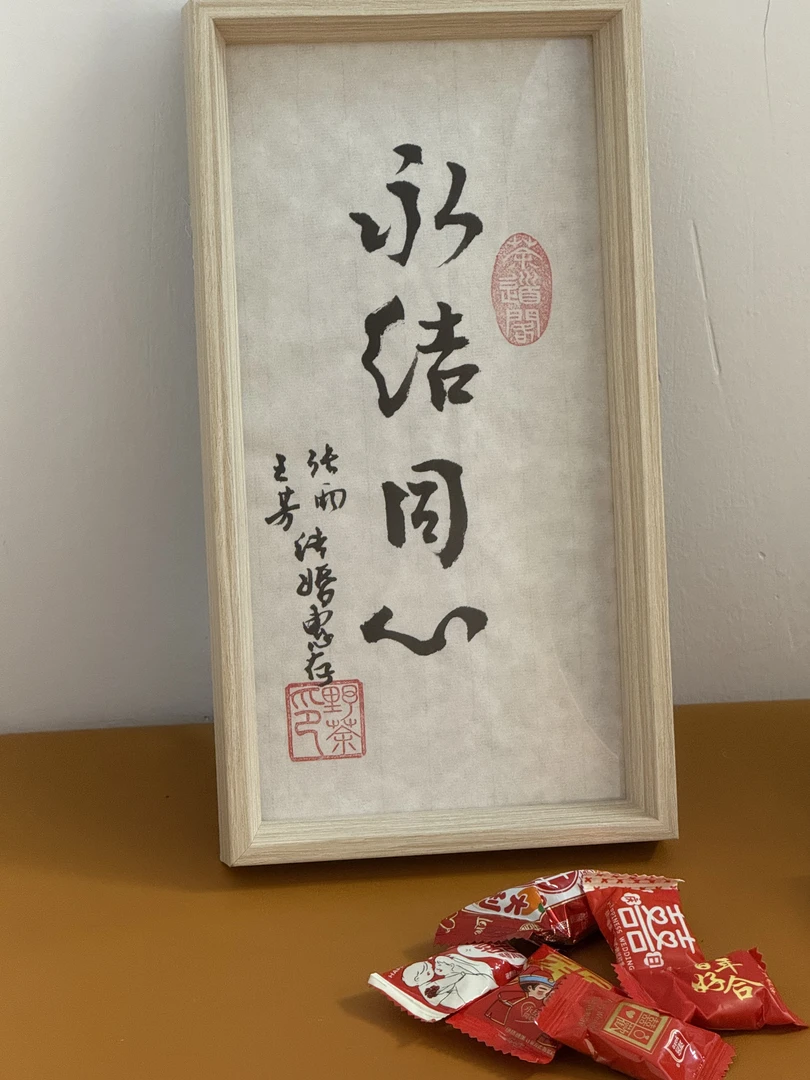 永结同心
茶道閣
张雨
王芳
结婚惠存
野茶
印
囍
CHINESS WEDDING
百年
好合